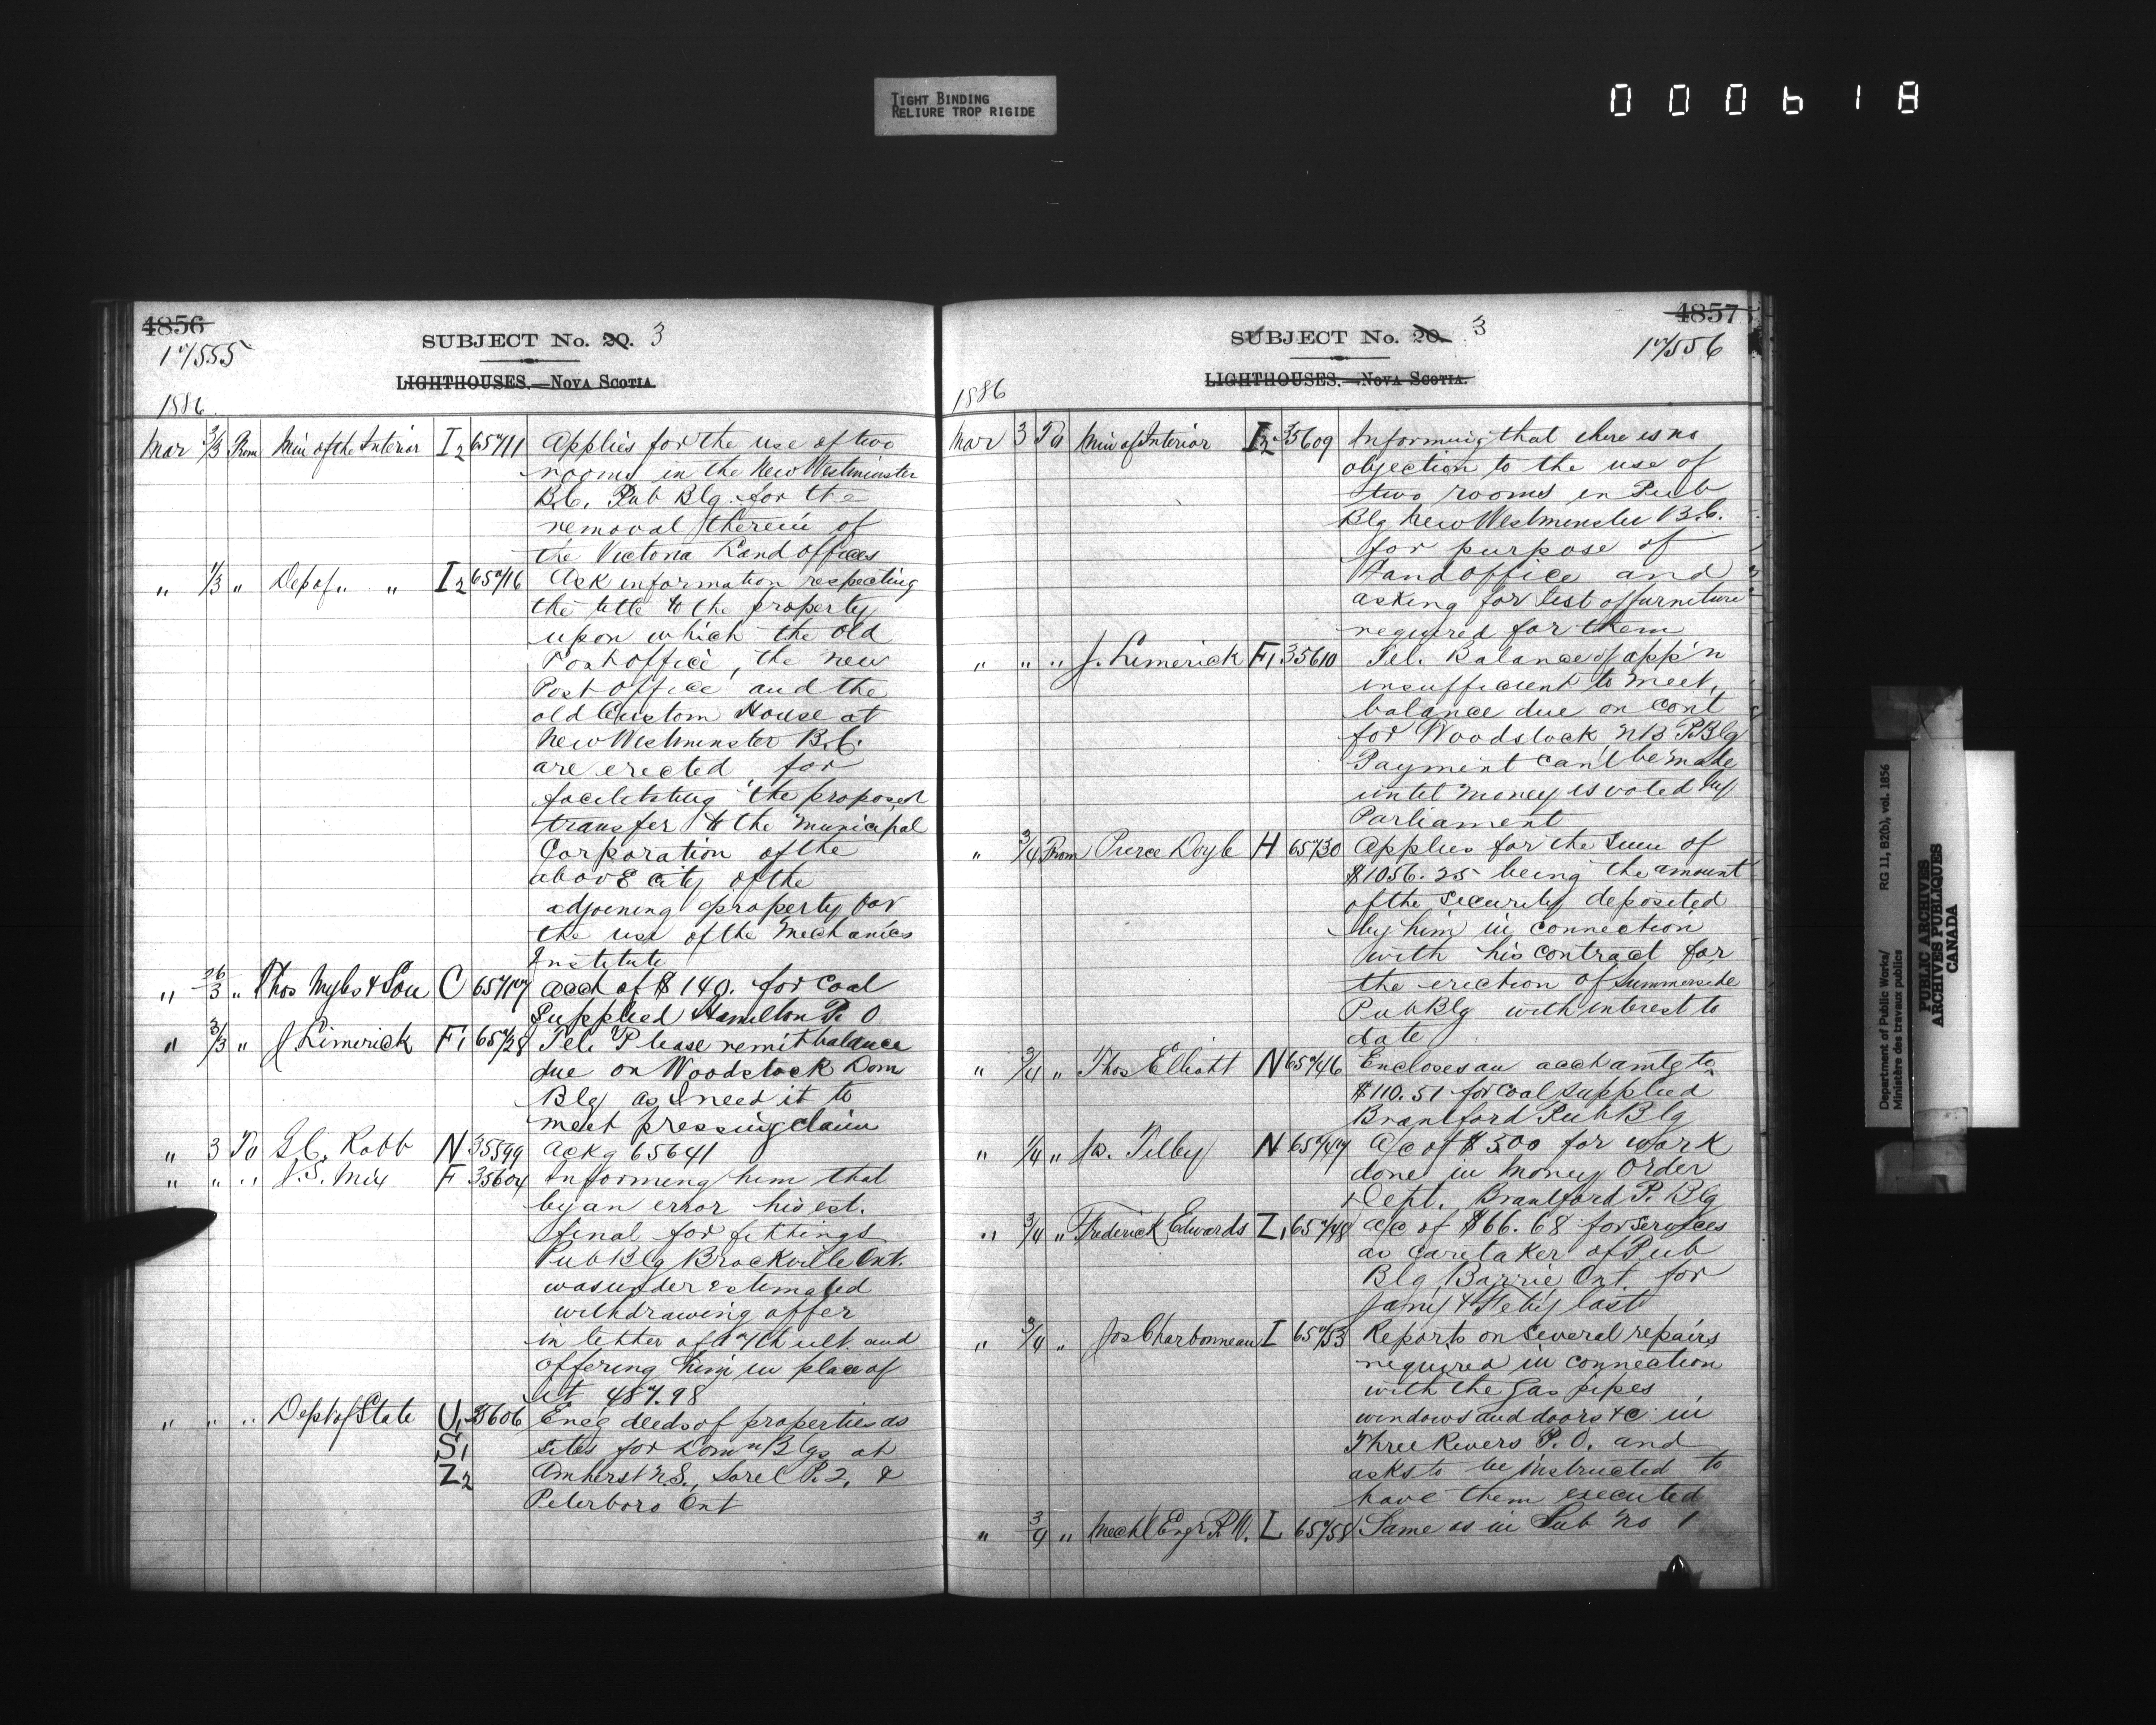 TIGHT BINDING
RELIURE TROP RIGIDE
000618
4856
17555
SUBJECT No. 20. 3
LIGHTHOUSES.—NOVA SCOTIA.
1886
Mar 2/3 From Min of the Interior I2 65711 Applies for the use of two
rooms in the New Westminster
B.C. Pub Blg. for the
removal therein of
the Victoria Land offices
" 1/3 " Dep of " " I2 65716 Ask information respecting
the title to the property
upon which the old
Post office, the new
Post office and the
old Custom House at
New Westminster B.C.
are erected for
facilitating the proposed
transfer to the Municipal
Corporation of the
above city of the
adjoining property for
the use of the Mechanics
Institute
" 26/3 " Thos Myles & Son C 65717 acct of $140. for coal
Supplied Hamilton P. O
" 3/3 " J Limerick F1 65728 Tel. Please remit balance
due on Woodstock Dom
Blg as I need it to
meet pressing claim
" 3 To G C. Robb N 35599 Ackg 65641
" " " J. S. Mix F 35604 Informing him that
by an error his est.
final for fittings
Pub Blg Brockville Ont.
was under estimated
withdrawing offer
in letter of 17th ult. and
offering him in place of
it 487.98
" " " Dept of State U1 35606 Encg deeds of properties as
S1 sites for Domn Blgs at
Z2 Amherst N.S., Sorel P.2, &
Peterboro Ont
4857
SUBJECT No. 20. 3
17556
LIGHTHOUSES.—NOVA SCOTIA.
1886
Mar 3 To Min of Interior I2 35609 Informing that there is no
objection to the use of
two rooms in Pub
Blg New Westminster B.C.
for purpose of
Land office and
asking for list of furniture
required for them
" " " J. Limerick F1 35610 Tel. Balance of app'n
insufficient to meet
balance due on cont
for Woodstock NB P.Blg
Payment can't be made
until money is voted by
Parliament
" 3/4 From Pierce Doyle H 65730 Applies for the sum of
$1056.25 being the amount
of the security deposited
by him in connection
with his contract for
the erection of Summerside
Pub Blg with interest to
date
" 3/4 " Thos Elliott N 65746 Encloses an acct amtg to
$110.51 for coal supplied
Brantford Pub Blg
" 1/4 " Jas. Tilley N 65747 A/c of $300 for work
done in Money Order
Dept. Brantford P. Blg
" 3/4 " Frederick Edwards Z1 65748 a/c of $66.68 for services
as caretaker of Pub
Blg Barrie Ont. for
Jany & Feby last
" 3/4 " Jos Charbonneau I 65753 Reports on several repairs
required in connection
with the gas pipes
windows and doors &c in
Three Rivers P. O. and
asks to be instructed to
have them executed
" 3/4 " Mechl Engr P.W. L 65758 Same as in Sub No 1
Department of Public Works/ RG 11, B2(b), vol. 1856
Ministère des travaux publics
PUBLIC ARCHIVES
ARCHIVES PUBLIQUES
CANADA